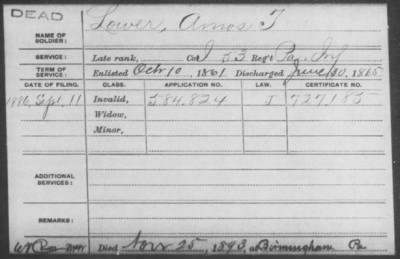 DEAD
NAME OF SOLDIER: Lower, Amos T
SERVICE: Late rank, Co. I 53 Reg't Pa. Inf
TERM OF SERVICE: Enlisted Oct 10, 1861 Discharged June 30, 1865
DATE OF FILING. CLASS. APPLICATION NO. LAW. CERTIFICATE NO.
1886, Sept. 11 Invalid, 584,824 727,185
Widow,
Minor,
ADDITIONAL SERVICES:
REMARKS:
Died Nov 25, 1893, at Birmingham Pa